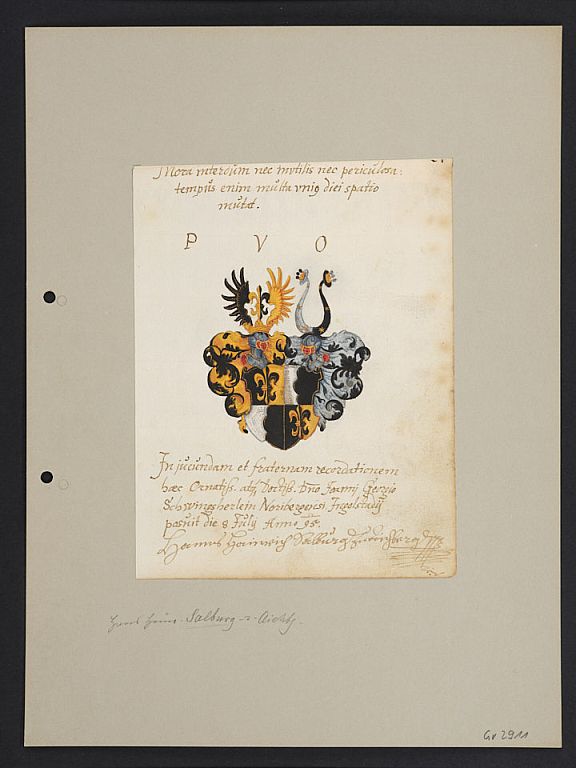 Mora interdum nec inutilis nec periculosa:
tempus enim multa unius diei spatio
mutat.
P V O
In jucundam et fraternam recordationem
hæc Ornatiss. atq Doctiss. Dno Joanni Georgio
Schwingsherlein Noribergensi Ingolstadij
posuit die 8 Julij Anno 95.
Hanns Hainrich Salburg
Hans Heinr. Salburg z. Aichbg.
Gs 2911